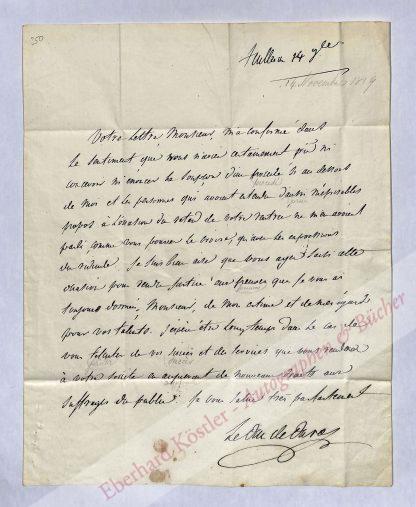 350
14 9bre
14 Novembre 1819
Votre lettre Monsieur, m'a confirmé dans
le sentiment que vous n'aviez certainement pu ni
concevoir ni énoncer le soupçon d'un procédé si au dessous
procédé
de moi et les personnes qui avoient entendu d'aussi méprisables
propos à l'occasion du retard de votre rentrée ne m'en avoient
parlé, comme vous pouvez le croire, qu'avec les expressions
du ridicule. Je suis bien aise que vous ayez saisi cette
occasion pour rendre justice aux preuves que je vous ai
toujours données, Monsieur, de mon estime et de mes égards
pour vos talents. J'espère être longtemps dans le cas de
vous féliciter de vos succès et des services que vous rendez
à votre société en acquérant de nouveaux droits aux
suffrages du public. Je vous salue très parfaitement
Le Duc de Duras
Eberhard Köstler - Autographen & Bücher